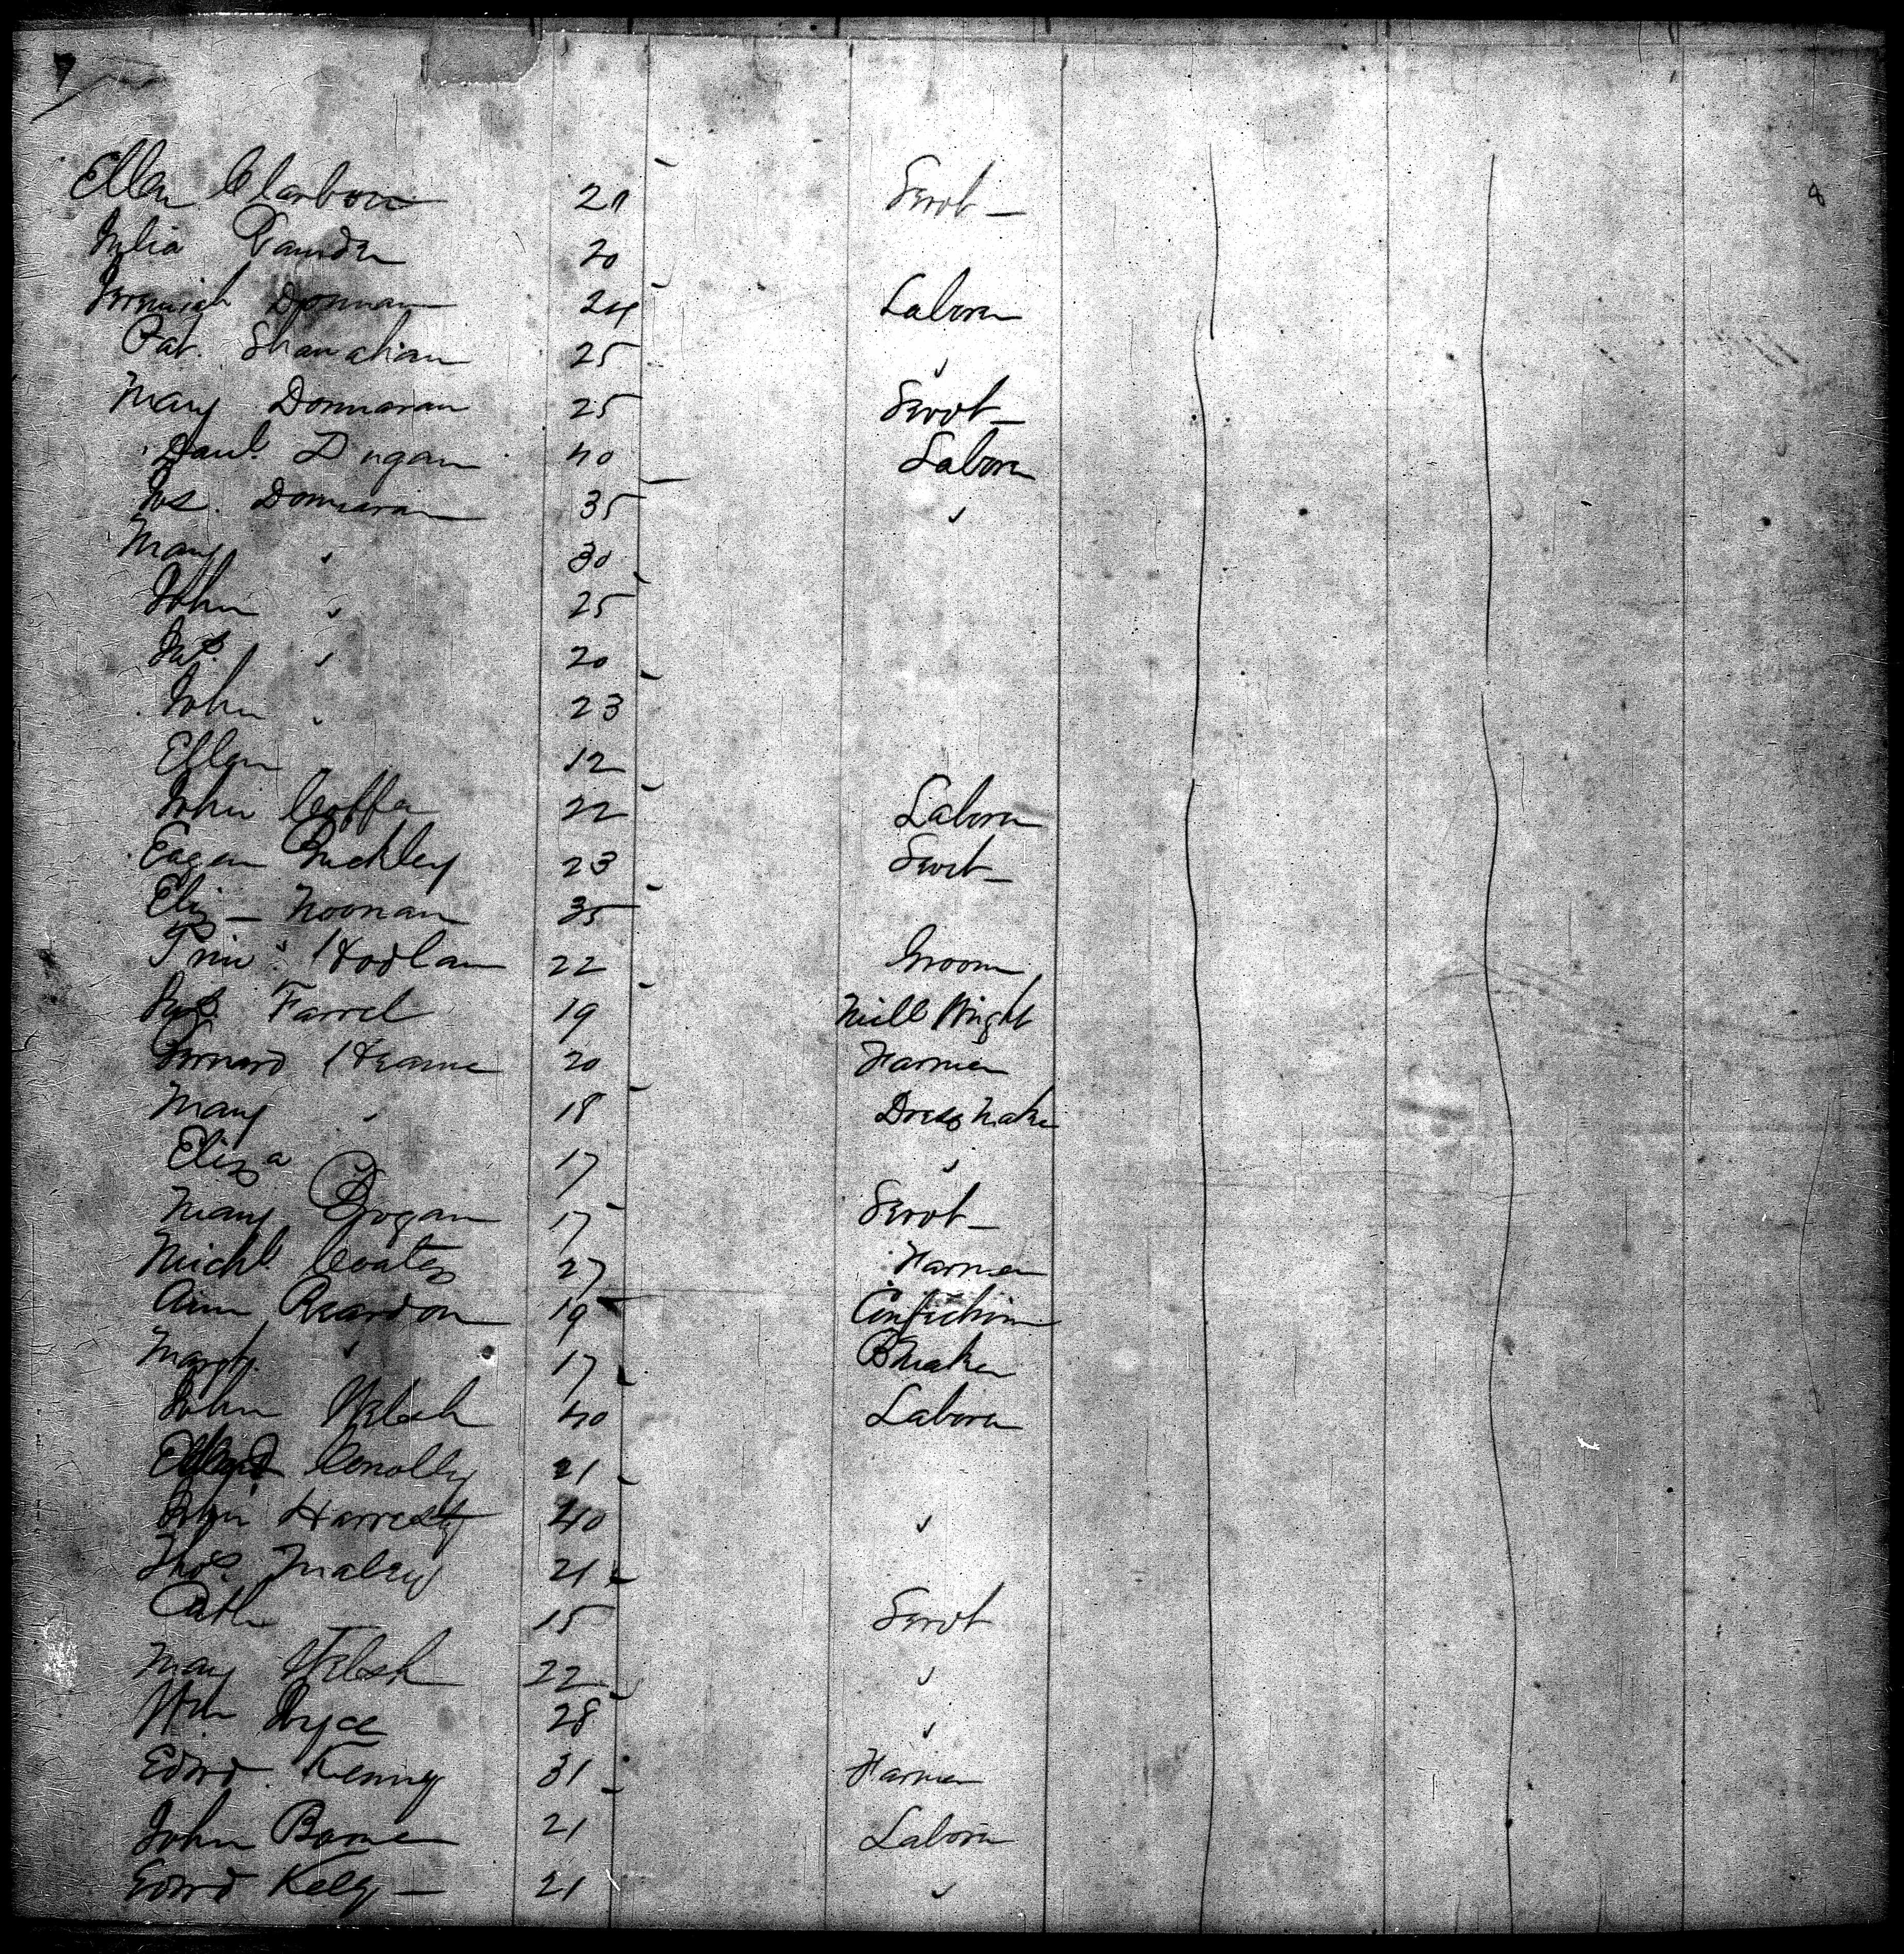 7
8
Ellen Clarbour 20 Servt —
Julia 20
Jeremiah Donnan 24 Labour
Pat. Shanahan 25 "
Mary Donnavan 25 Servt —
Danl. Dugan 40 Labour
Jas. Donnavan 35 "
Mary " 30
John " 25
Jas. " 20
John " 23
Ellen 12
John Coffe 22 Labour
Eagen Buckley 23 Servt —
Eliz — Noonan 35
Hodlan 22 Groom
Jas. Farrel 19 Mill Wright
Bernard Hearne 20 Farmer
Mary " 18 Dress Make
Eliza 17 "
Mary Grogan 17 Servt —
Michl. Coates 27 Farmer
Ann Reardon 19
Margt. " 17 B Maker
John Welsh 40 Labour
Conolly 21
John Harresty 40 "
Thos. Maley 21
Cath 15 Servt
Mary Welsh 22 "
Wm 28 "
Edwd. Kenny 31 Farmer
John Barne 21 Labour
Edwd Kelly — 21 "